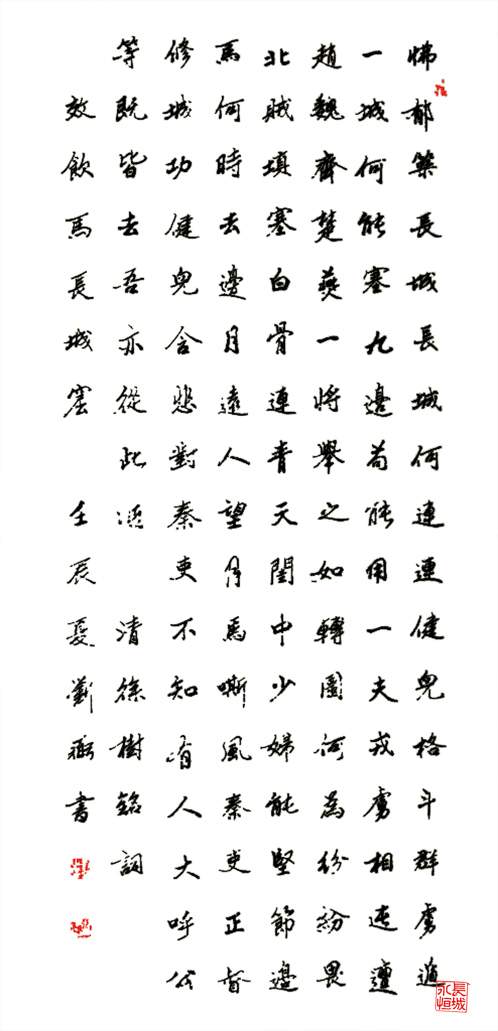 怫郁築長城長城何連連健兒格斗群虜進
一城何能塞九邊苟能用一夫戎虜相迍邅
趙魏齊楚燕一將舉之如轉圜何為紛紛畏
北賊填塞白骨連青天閨中少婦能堅節邊
馬何時去邊月遠人望月馬嘶風秦吏正督
修城功健兒含悲對秦吏不知有人大呼公
等既皆去吾亦從此逝 清徐樹銘詞
效飲馬長城窟 壬辰夏劉書
長城永恒